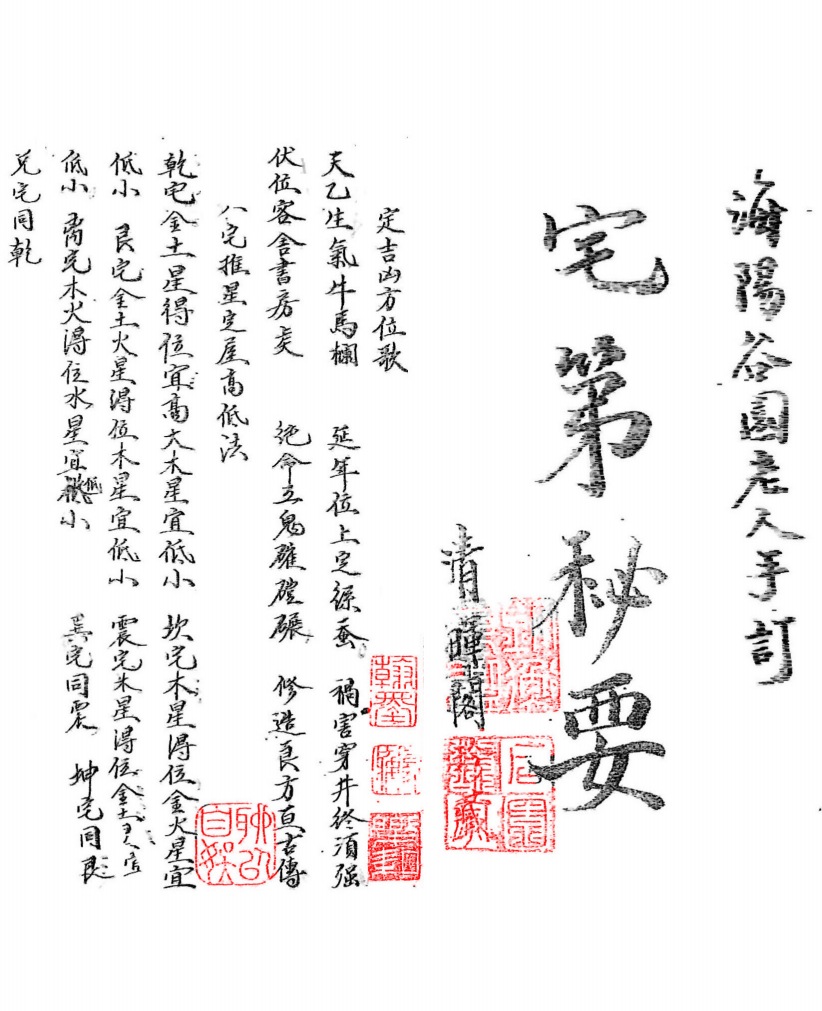 海陽谷園老人手訂
宅第秘要
清暉閣
定吉凶方位歌
天乙生氣牛馬欄 延年位上定綠蚕 禍害穿井終須强
伏位客舍書房炙 絶命五鬼碓磑碾 修造良方亘古傳
八宅推星定屋高低法
乾宅金土星得位宜高大木星宜低小 坎宅木星得位金火星宜
低小 艮宅金土火星得位木星宜低小 震宅木星得位金土 宜
低小 离宅木火得位水星宜低小 巽宅同震 坤宅同艮
兑宅同乾
翰墨
自娱